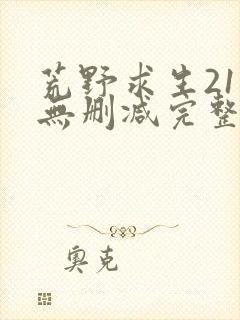 荒野求生21
無删减完整
奥克